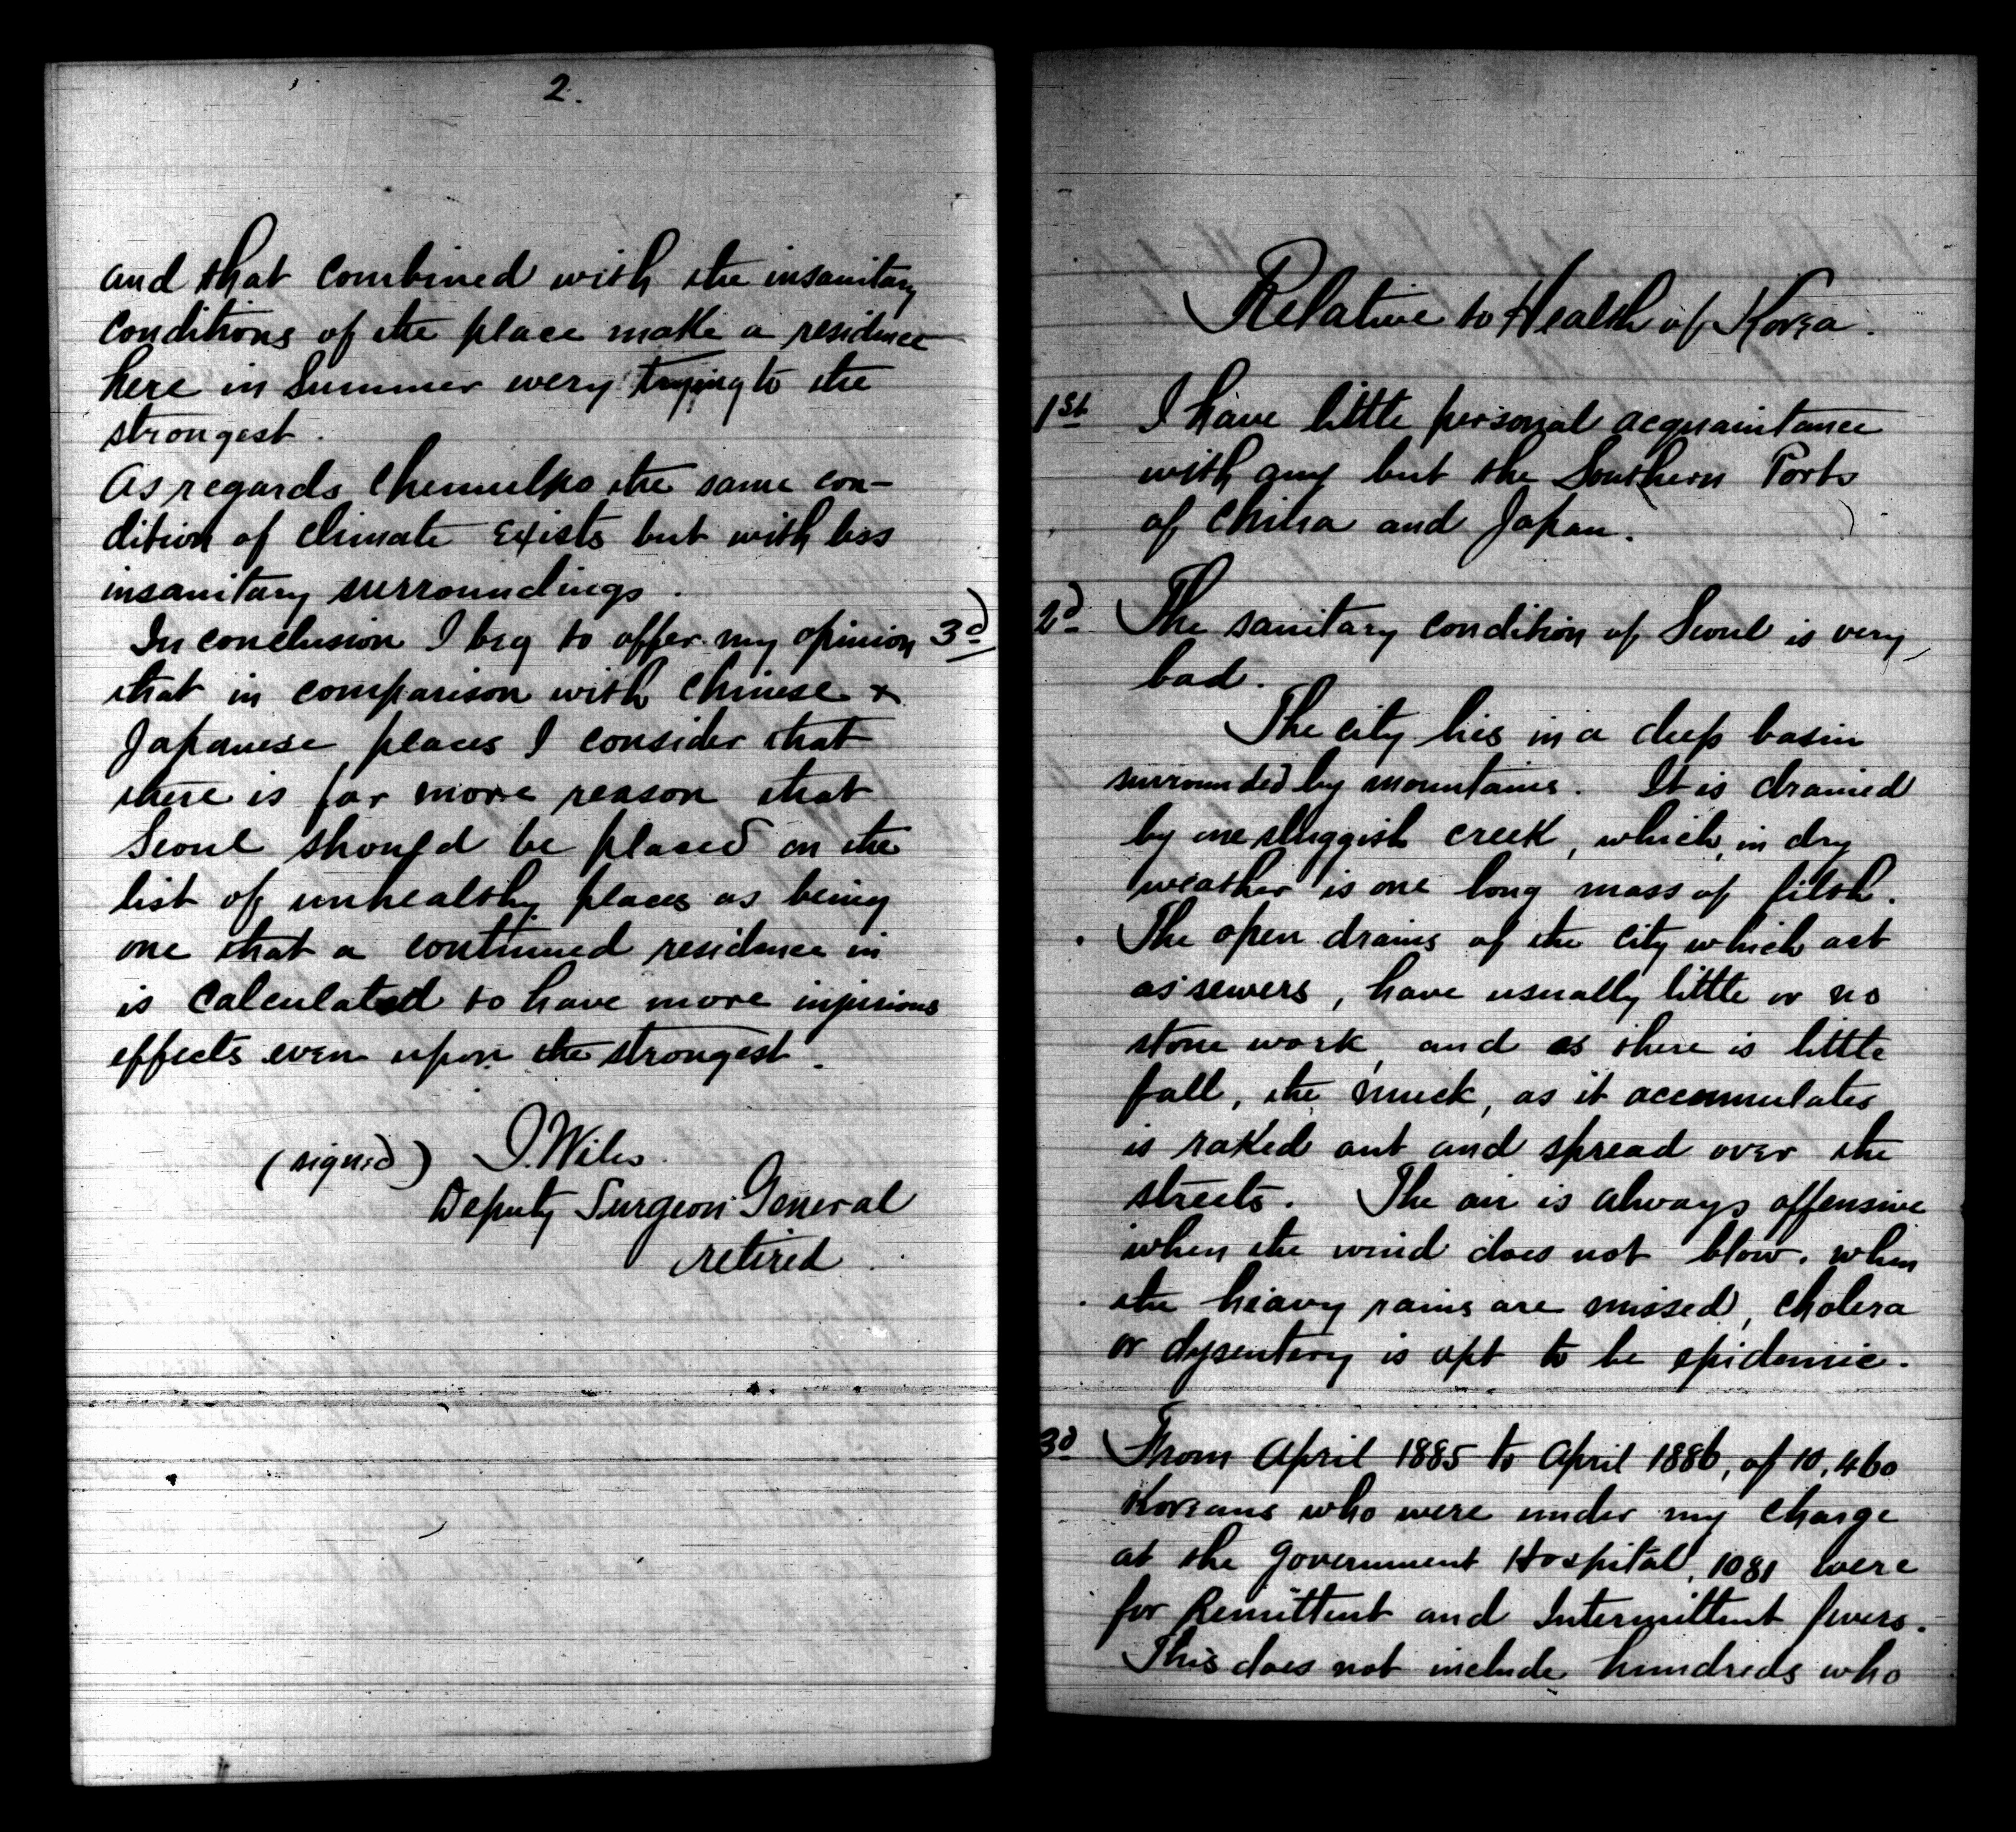 2.
and that combined with the insanitary
conditions of the place make a residence
here in Summer very trying to the
strongest.
As regards Chemulpo the same con-
dition of climate exists but with less
insanitary surroundings.
In conclusion I beg to offer my opinion 3d
that in comparison with Chinese &
Japanese places I consider that
there is far more reason that
Seoul should be placed on the
list of unhealthy places as being
one that a continued residence in
is calculated to have more injurious
effects even upon the strongest.
(signed) J. Wiles.
Deputy Surgeon General
retired.
Relative to Health of Korea.
1st I have little personal acquaintance
with any but the Southern Ports
of China and Japan.
2d The sanitary condition of Seoul is very
bad.
The city lies in a deep basin
surrounded by mountains. It is drained
by one sluggish creek, which, in dry
weather is one long mass of filth.
The open drains of the city which act
as sewers, have usually little or no
stone work, and as there is little
fall, the muck, as it accumulates
is raked out and spread over the
streets. The air is always offensive
when the wind does not blow. When
the heavy rains are missed, cholera
or dysentery is apt to be epidemic.
3d From April 1885 to April 1886, of 10,460
Koreans who were under my charge
at the Government Hospital, 1081 were
for Remittent and Intermittent fevers.
This does not include hundreds who